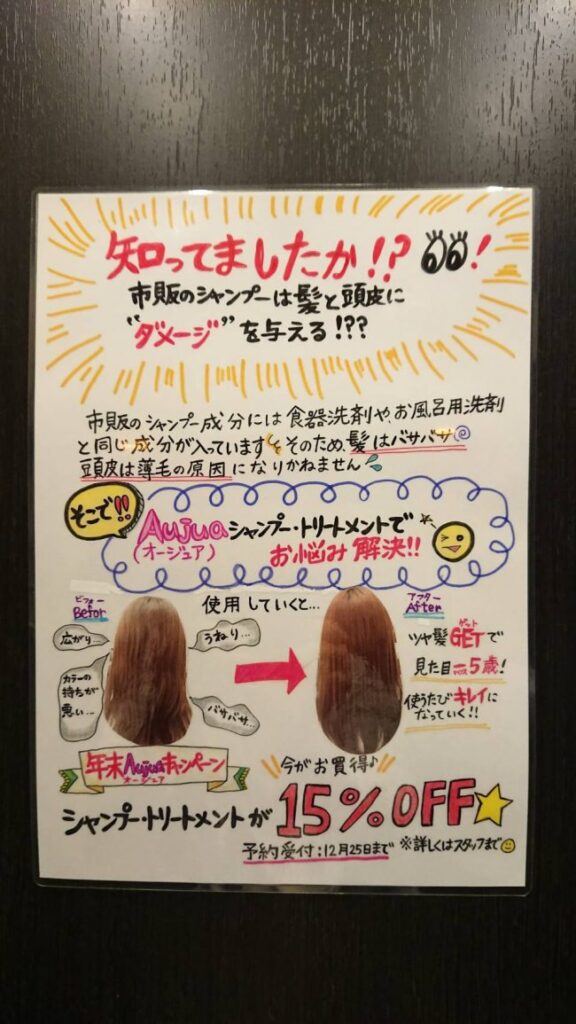 知ってましたか!?!
市販のシャンプーは髪と頭皮に
"ダメージ"を与える!??
市販のシャンプー成分には食器洗剤や、お風呂用洗剤
と同じ成分が入っています そのため、髪はバサバサ
頭皮は薄毛の原因になりかねません
そこで!!
Aujuaシャンプー・トリートメントで
(オージュア)
お悩み解決!!
ビフォー
Befor
使用していくと…
アフター
After
広がり…
うねり…
カラーの
持ちが
悪い…
バサバサ…
ツヤ髪GETで
ゲット
見た目－5歳!
マイナス
使うたびキレイに
なっていく!!
年末Aujuaキャンペーン
オージュア
今がお買得♪
シャンプー・トリートメントが15%OFF
予約受付:12月25日まで ※詳しくはスタッフまで